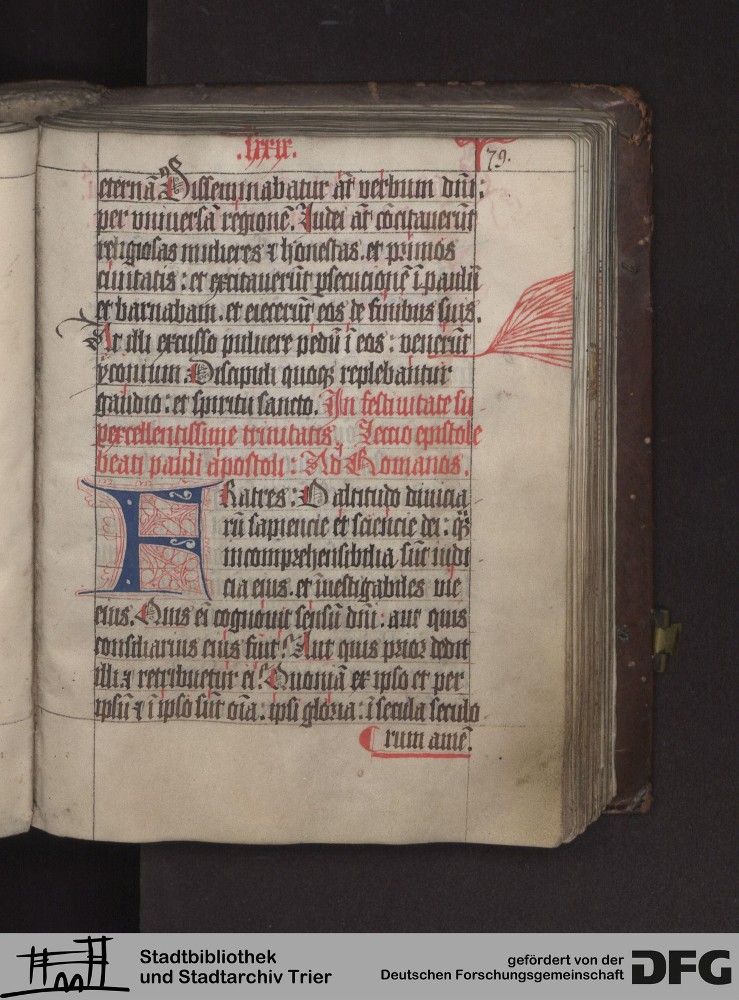 .lxxix.
79.
eternā Disseminabatur āt verbum dn̄i:
per vniuersā regionē. Iudei āt cōcitauerūt
religiosas mulieres ⁊ honestas. et primos
ciuitatis: et excitauerūt ꝑsecucionē ī paulū
et barnabam. et eiecerūt eos de finibus suis.
At illi excusso puluere pedū ī eos: venerūt
yconium. Discipuli quoqꝫ replebantur
gaudio: et spiritu sancto. In festiuitate su
percellentissime trinitatis. Leccio epistole
beati pauli apostoli: Ad Romanos.
FRatres: O altitudo diuicia
rū sapiencie et sciencie dei: qͣꝫ
incomprehensibilia sūt iudi
cia eius. et īuestigabiles vie
eius. Quis eī cognouit sensū dn̄i: aut quis
consiliarius eius fuit? Aut quis prior dedit
illi ⁊ retribuetur ei? Quoniā ex ipso et per
ipsū ⁊ ī ipso sūt oīa: ipsi gloria: ī secula seculo
rum amē.
Stadtbibliothek
und Stadtarchiv Trier
gefördert von der
Deutschen Forschungsgemeinschaft
DFG